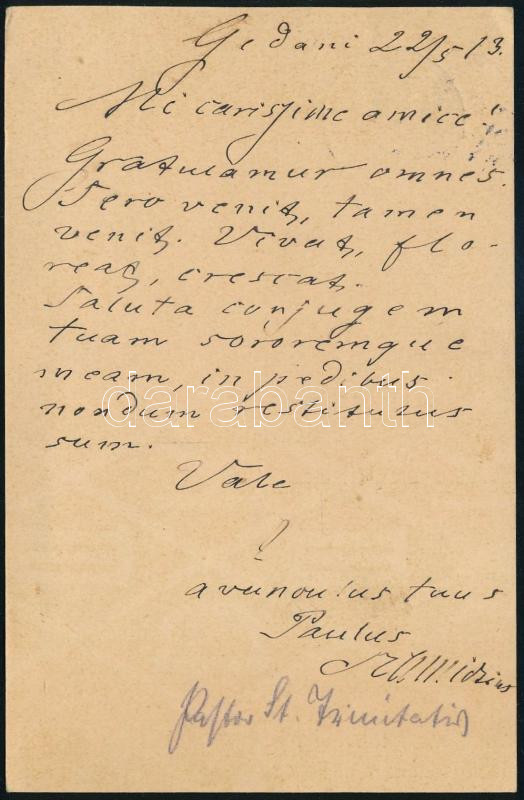 Gedani 22/5 13.
Mi carissime amice!
Gratulamur omnes.
Sero venit, tamen
venit. Vivat, flo-
reat, crescat.
Saluta conjugem
tuam sororemque
meam, in pedibus
nondum restitutus
sum.
Vale
avunculus tuus
Paulus
Pastor St. Trinitatis
darabanth